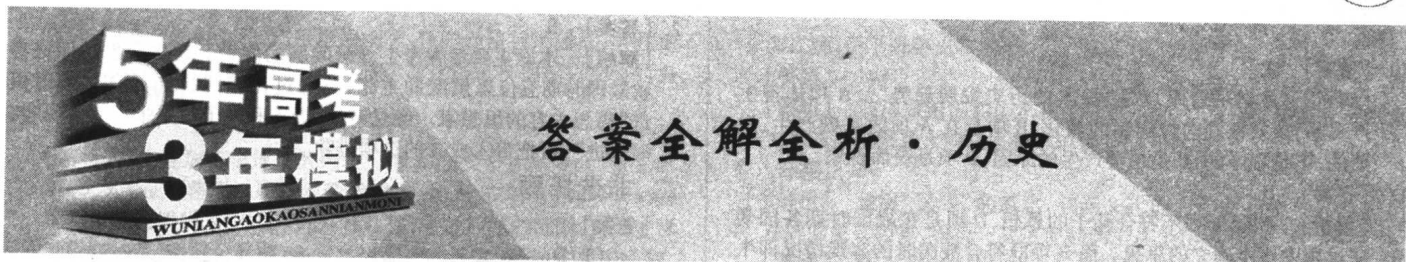 5年高考
3年模拟
WUNIANGAOKAOSANNIANMONI
答案全解全析·历史